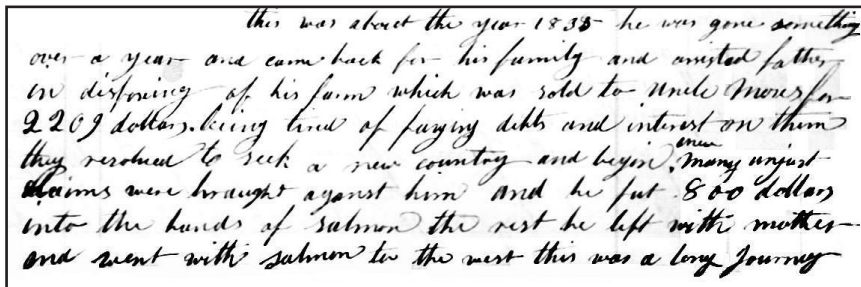 this was about the year 1835 he was gone something
over a year and came back for his family and assisted father
in disposing of his farm which was sold to uncle Moses for
2209 dollars. being tired of paying debts and interest on them
they resolved to seek a new country and begin anew many unjust
claims were braught against him and he put 800 dollars
into the hands of salmon the rest he left with mother
and went with salmon to the west this was a long journey